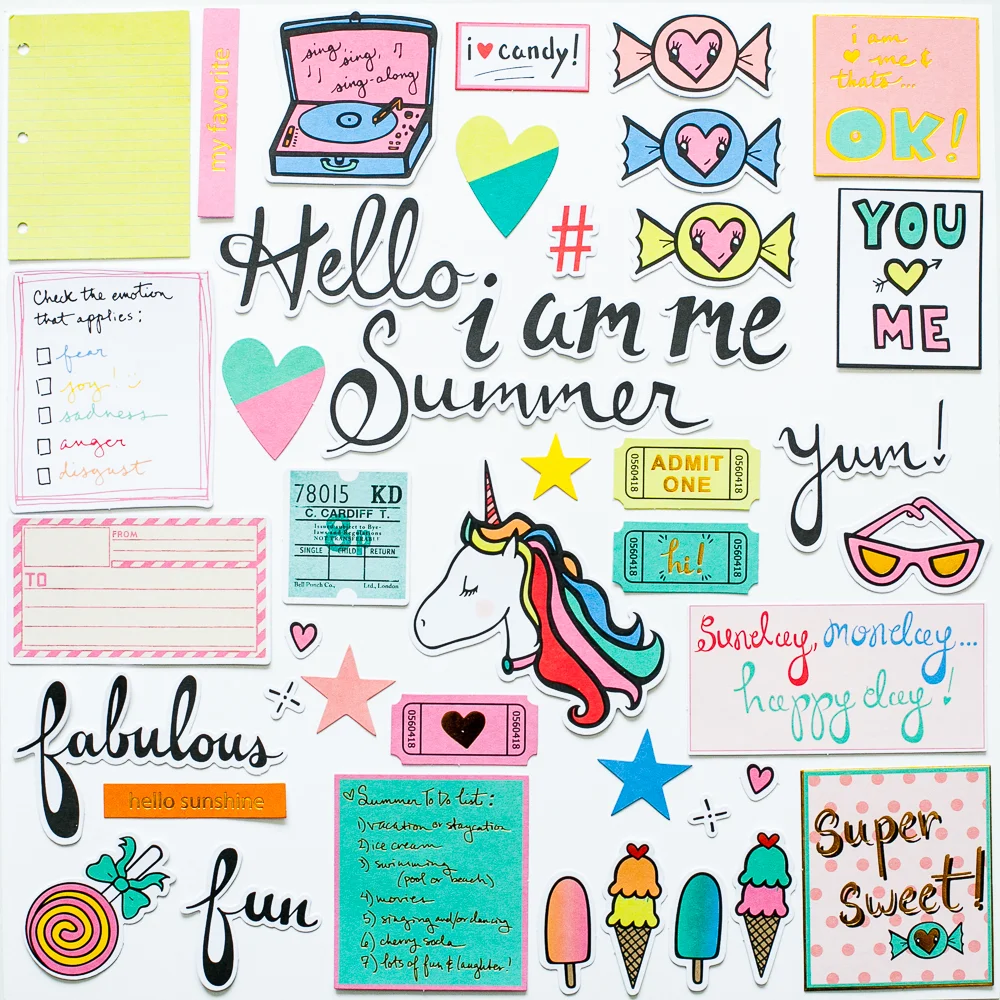 my favorite
sing
sing,
sing-along
i ♥ candy!
i am
♥ me &
thats...
OK!
Hello
#
i am me
YOU
ME
Summer
Check the emotion
that applies:
fear
joy! :)
sadness
anger
disgust
yum!
0560418 ADMIT ONE 0560418
0560418 hi! 0560418
78015 KD
C. CARDIFF T.
Issued subject to Bye-
laws and Regulations
NOT TRANSFERABLE
SINGLE CHILD RETURN
Bell Punch Co., Ltd., London
FROM
TO
Sunday, monday...
happy day!
fabulous
0560418 0560418
hello sunshine
fun
Summer To Do list:
1) vacation or staycation
2) ice cream
3) swimming
(pool or beach)
4) movies
5) singing and/or dancing
6) cherry soda
7) lots of fun & laughter!
Super
Sweet!